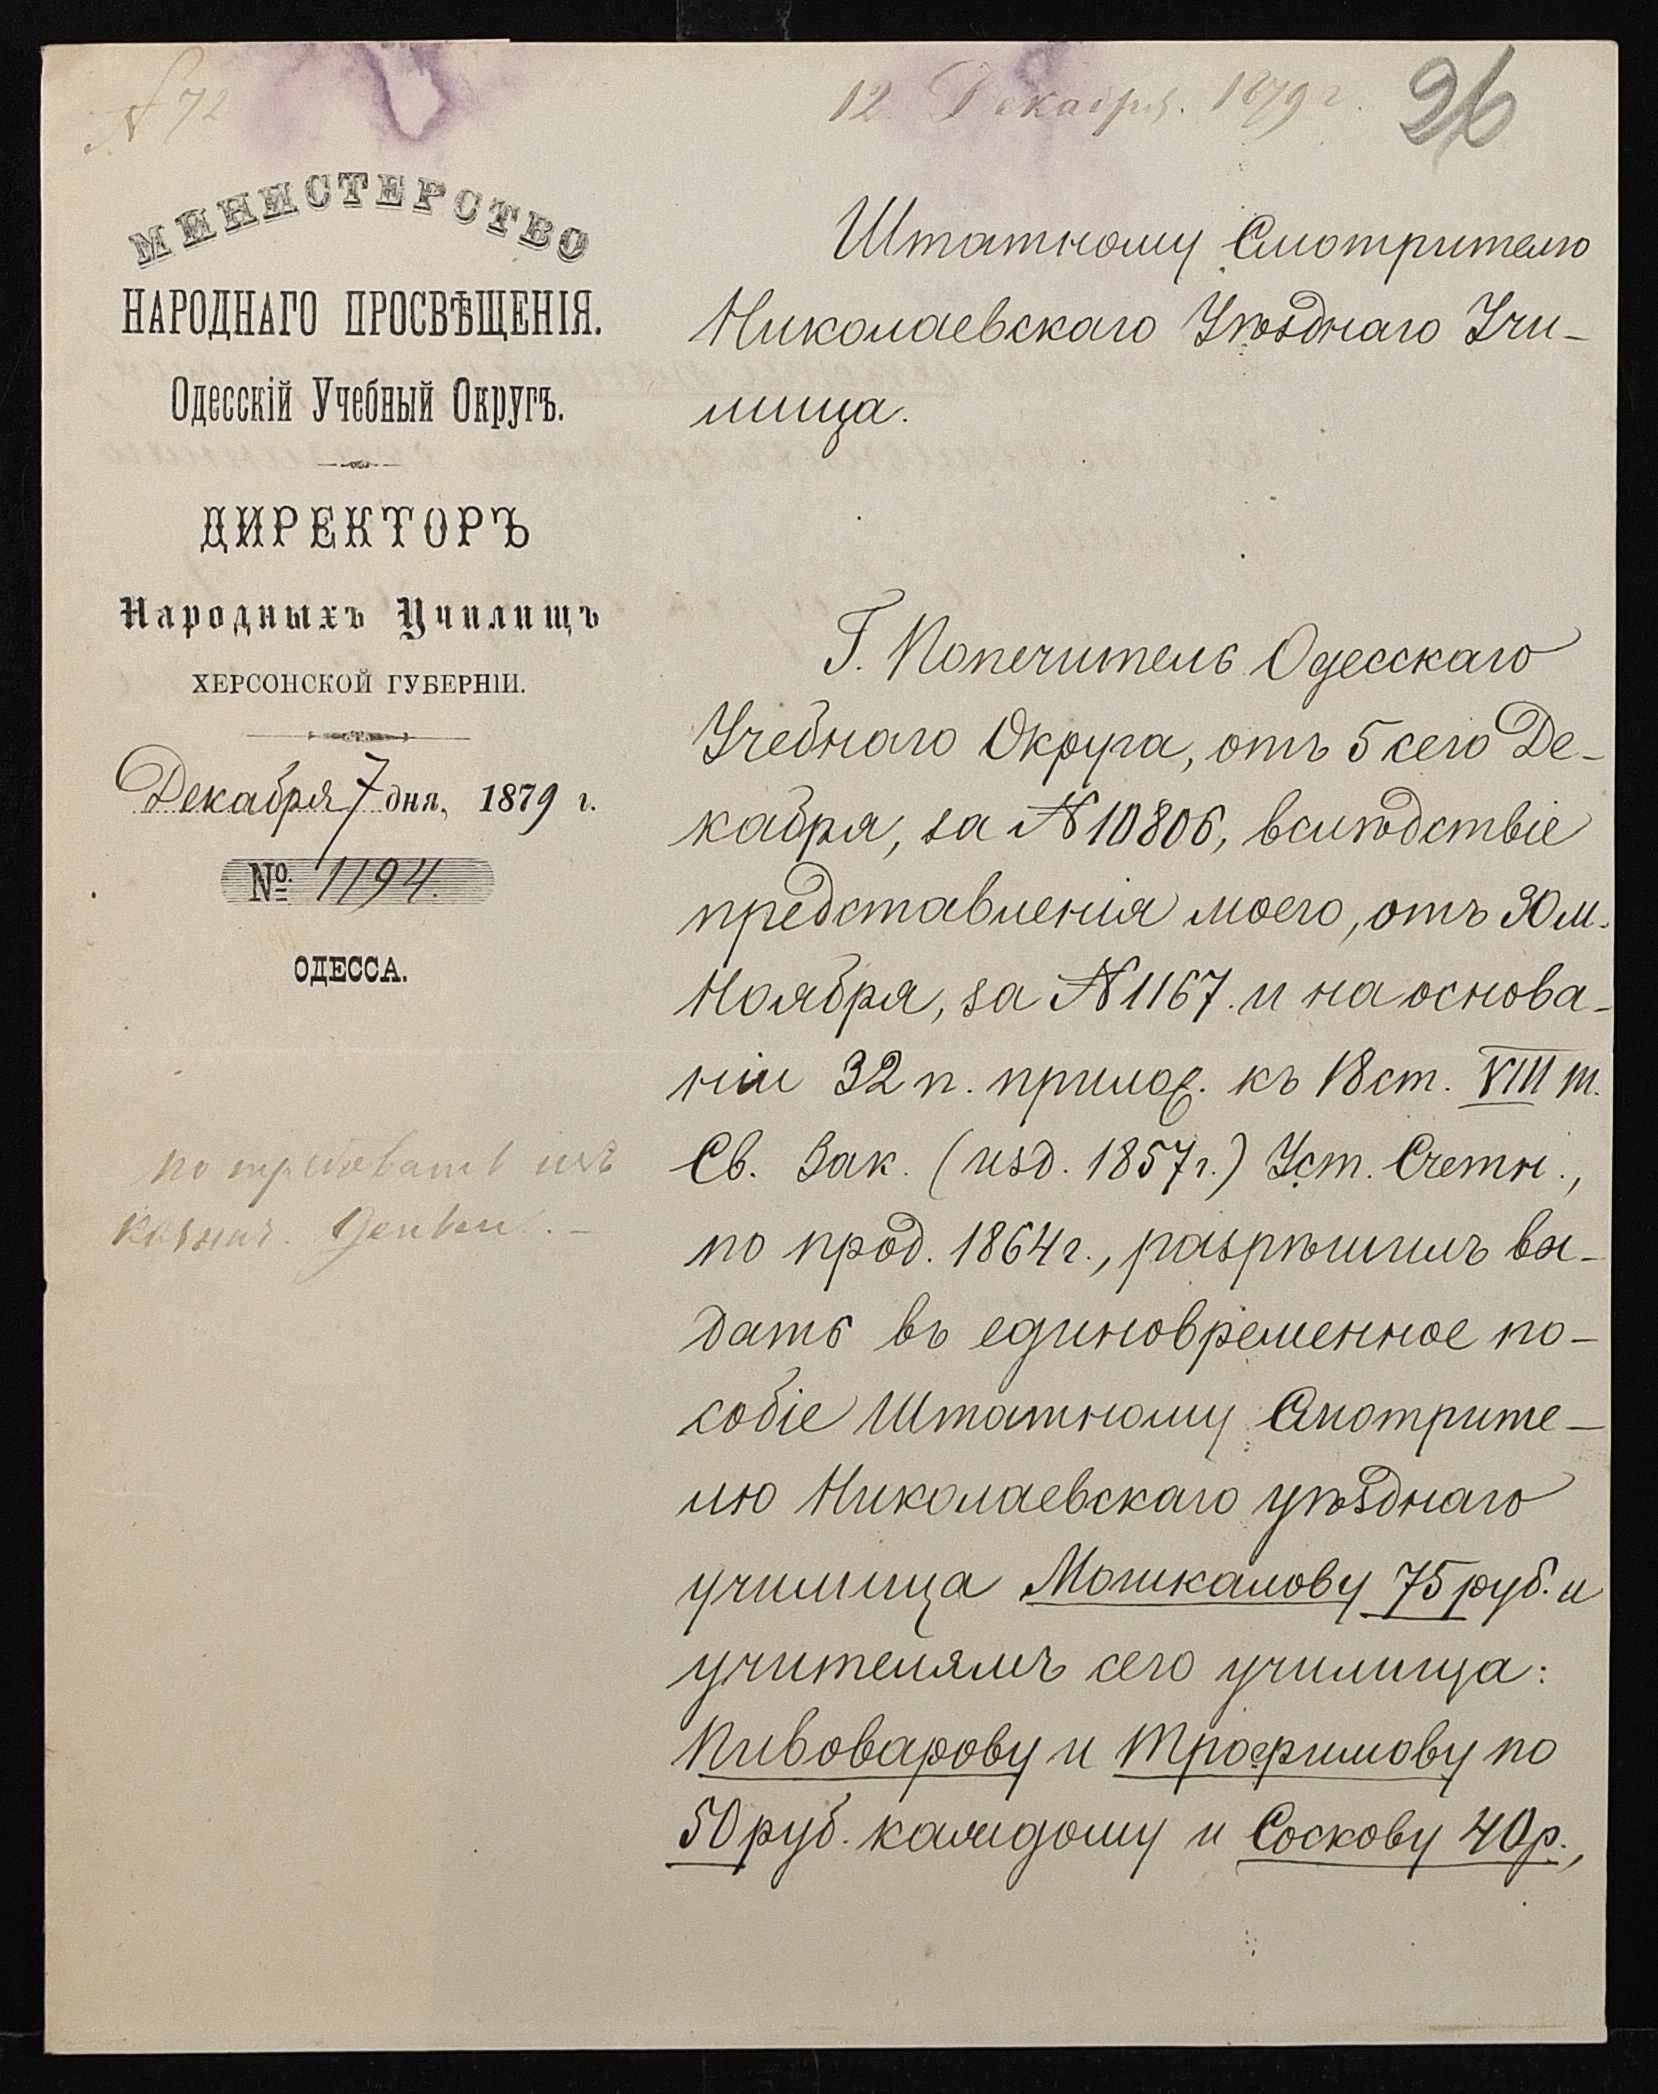 N 72
12 Декабря. 1879 г.
26
МИНИСТЕРСТВО
НАРОДНАГО ПРОСВѢЩЕНІЯ.
Одесскій Учебный Округъ.
ДИРЕКТОРЪ
Народныхъ Училищъ
ХЕРСОНСКОЙ ГУБЕРНІИ.
Декабря 7 дня, 1879 г.
№ 1194.
ОДЕССА.
потребовать изъ
казнач. деньги. –
Штатному Смотрителю
Николаевскаго Уѣзднаго Учи-
лища.
Г. Попечитель Одесскаго
Учебнаго Округа, отъ 5 сего Де-
кабря, за N 10806, вслѣдствіе
представленія моего, отъ 30 м.
Ноября, за N 1167. и на основа-
ніи 32 п. прилож. къ 18 ст. VIII т.
Св. Зак. (изд. 1857 г.) Уст. Счетн.,
по прод. 1864 г., разрѣшилъ вы-
дать въ единовременное по-
собіе Штатному Смотрите-
лю Николаевскаго уѣзднаго
училища Мошкалову 75 руб. и
учителямъ сего училища:
Пивоварову и Трофимову по
50 руб. каждому и Соскову 40 р.,